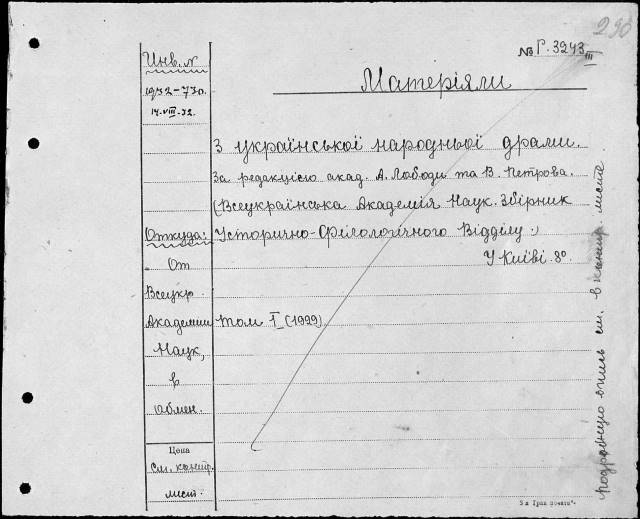 290
№ Г. 3243
III
Инв. №
1932-730.
14.VIII.32.
Матеріяли
З української народньої драми.
За редакцією акад. А. Лободи та В. Петрова.
(Всеукраїнська Академія Наук. Збірник
Історично-Філологічного Відділу.)
У Київі. 8°.
Том I (1929)
Откуда:
От
Всеукр.
Академии
Наук,
в
обмен.
Цена
См. контр.
лист.
подробную опись см. в контр. листе.